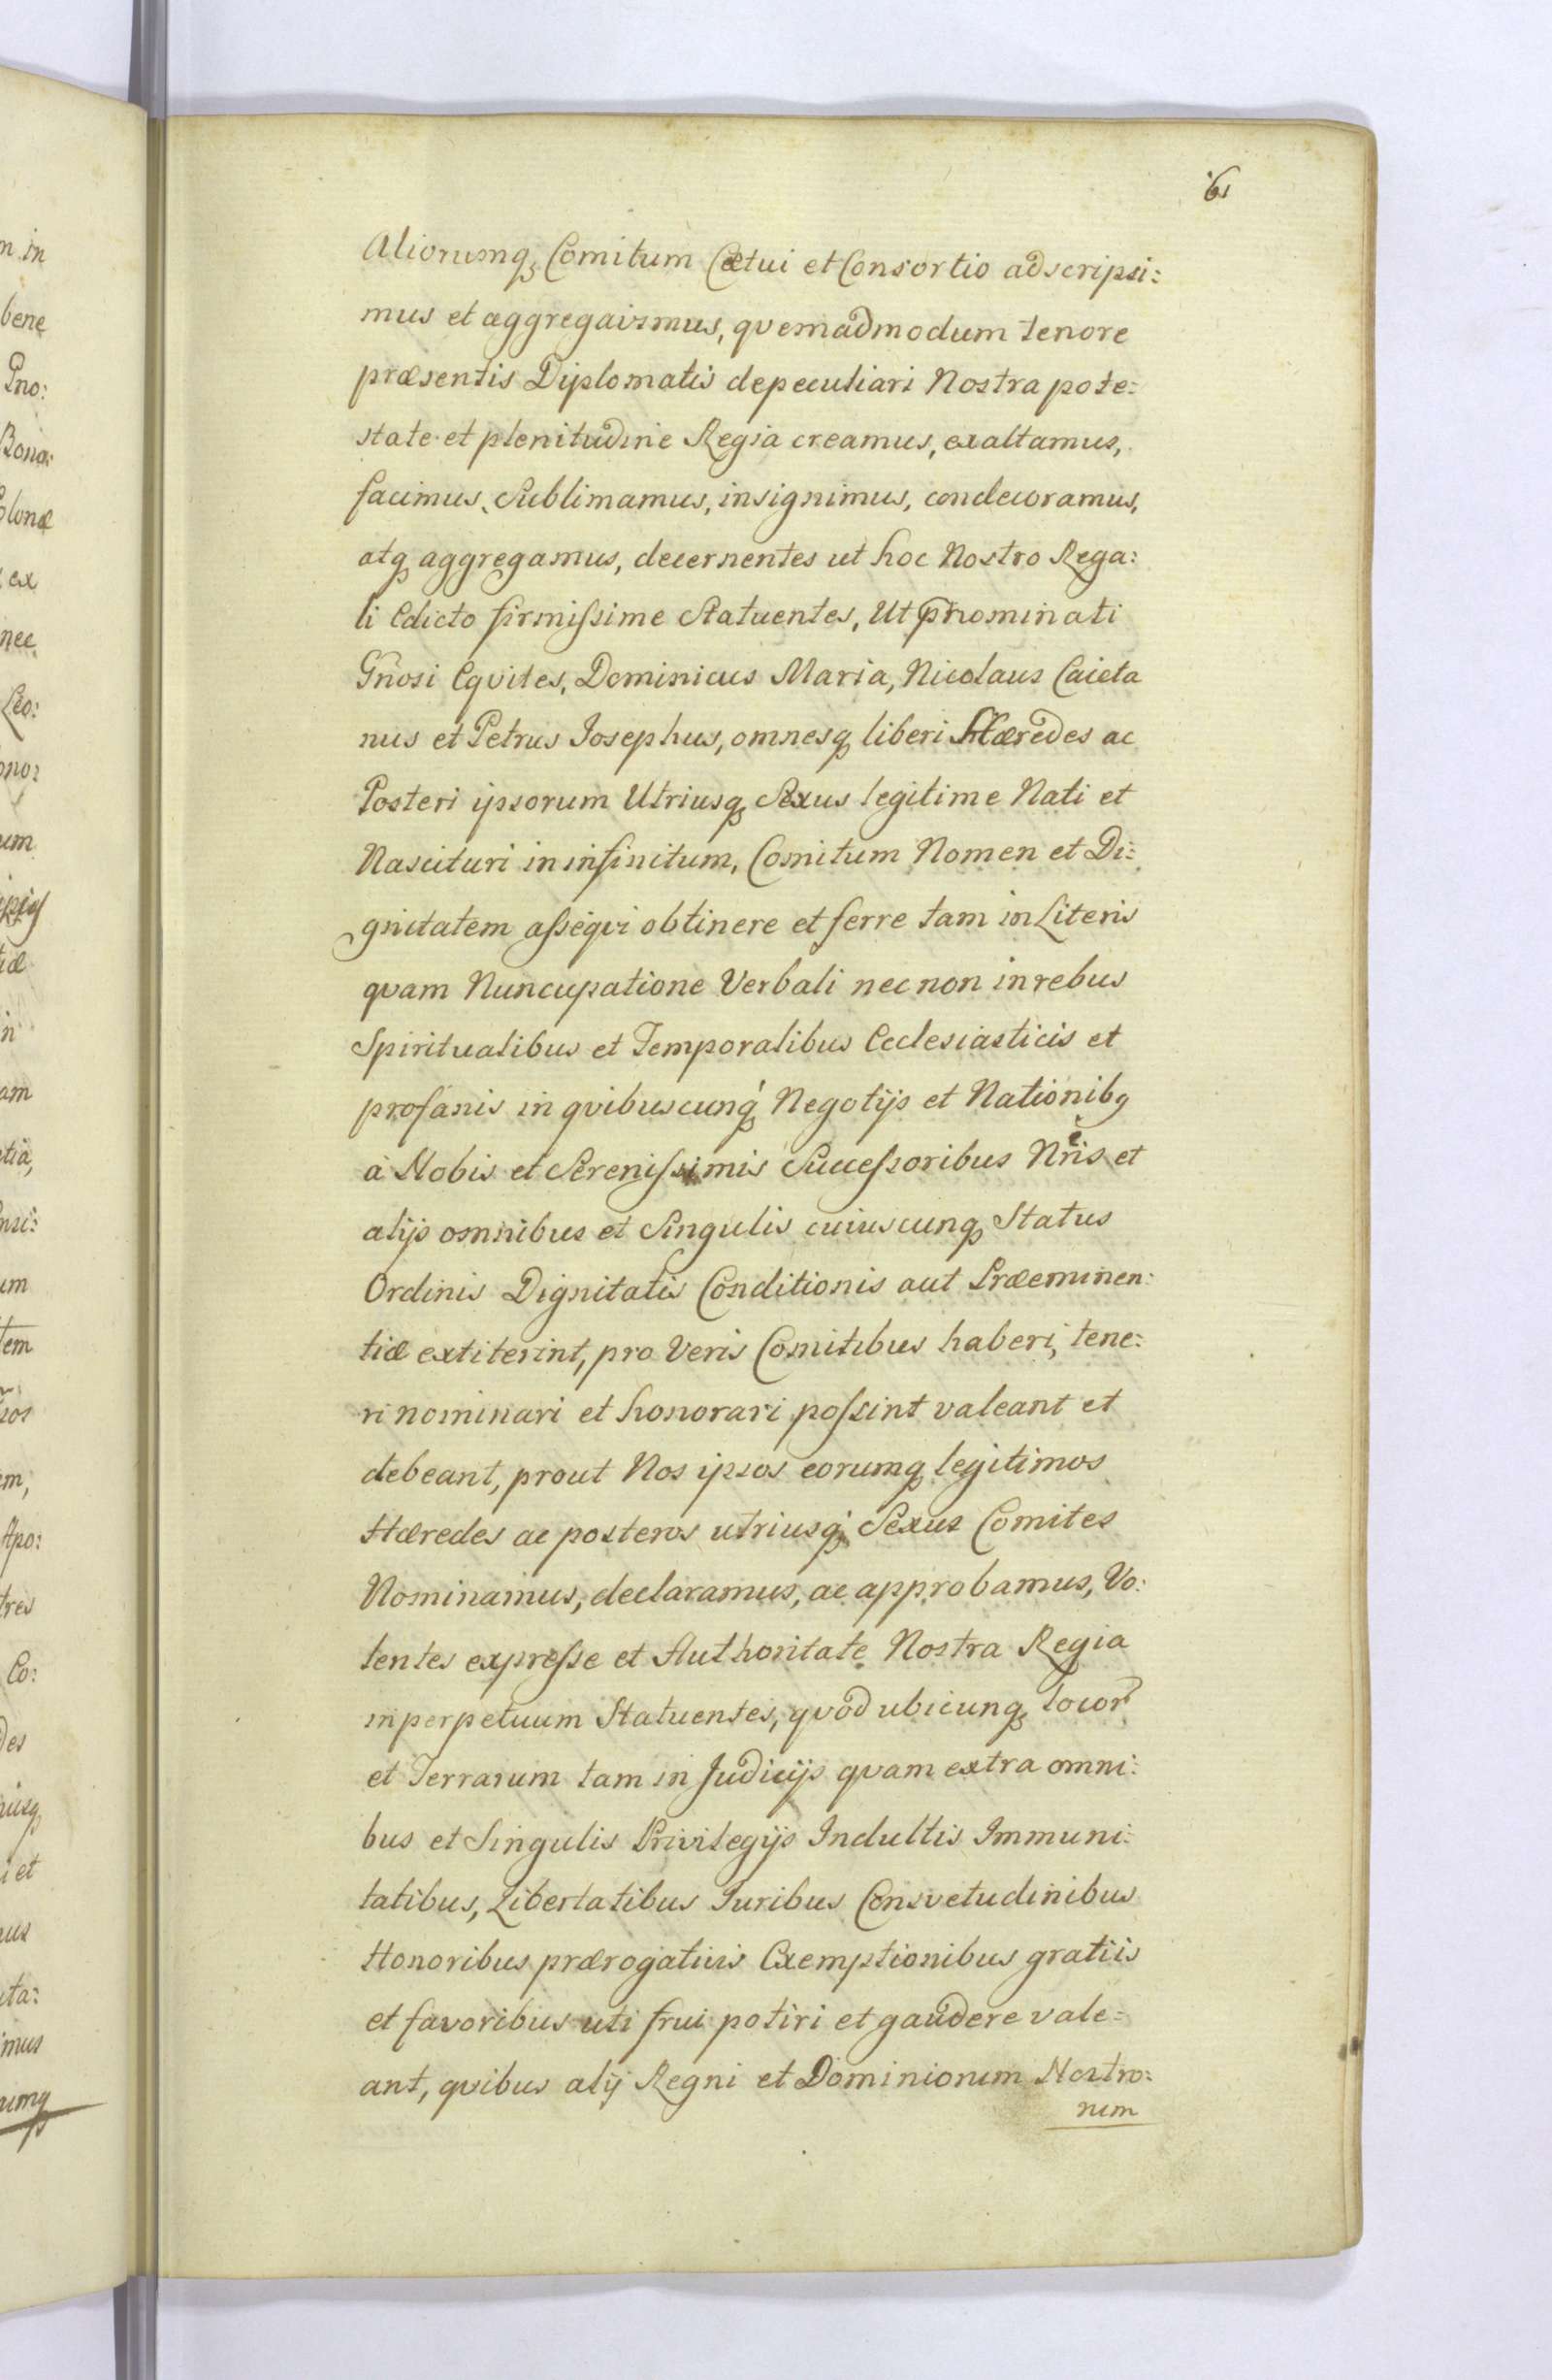 61
Aliorumq; Comitum Cœtui et Consortio adscripsi:
mus et aggregavimus, qvemadmodum tenore
præsentis Diplomatis de peculiari Nostra pote:
state et plenitudine Regia creamus, exaltamus,
facimus, Sublimamus, insignimus, condecoramus,
atq; aggregamus, decernentes ut hoc Nostro Rega:
li Edicto firmissime Statuentes, Ut prnominati
Gnosi Eqvites, Dominicus Maria, Nicolaus Caieta
nus et Petrus Iosephus, omnesq; liberi Hæredes ac
Posteri ipsorum Utriusq; Sexus legitime Nati et
Nascituri in infinitum, Comitum Nomen et Di:
gnitatem asseqvi obtinere et ferre tam in Literis
qvam Nuncupatione Verbali nec non in rebus
Spiritualibus et Temporalibus Ecclesiasticis et
profanis in qvibuscunq; Negotijs et Nationibq
à Nobis et Serenissimis Successoribus Nris et
alijs omnibus et Singulis cuiuscunq; Status
Ordinis Dignitatis Conditionis aut Præeminen:
tiæ extiterint, pro Veris Comitibus haberi, tene:
ri nominari et honorari possint valeant et
debeant, prout Nos ipsos eorumq; legitimos
Hæredes ac posteros utriusq; Sexus Comites
Nominamus, declaramus, ac approbamus, Vo:
lentes expresse et Authoritate Nostra Regia
in perpetuum Statuentes, qvod ubicunq; locor
et Terrarum tam in Judicijs qvam extra omni:
bus et Singulis Privilegijs Indultis Immuni:
tatibus, Libertatibus Iuribus Consvetudinibus
Honoribus prærogativis Exemptionibus gratiis
et favoribus uti frui potiri et gaudere vale:
ant, qvibus alij Regni et Dominiorum Nostro:
rum